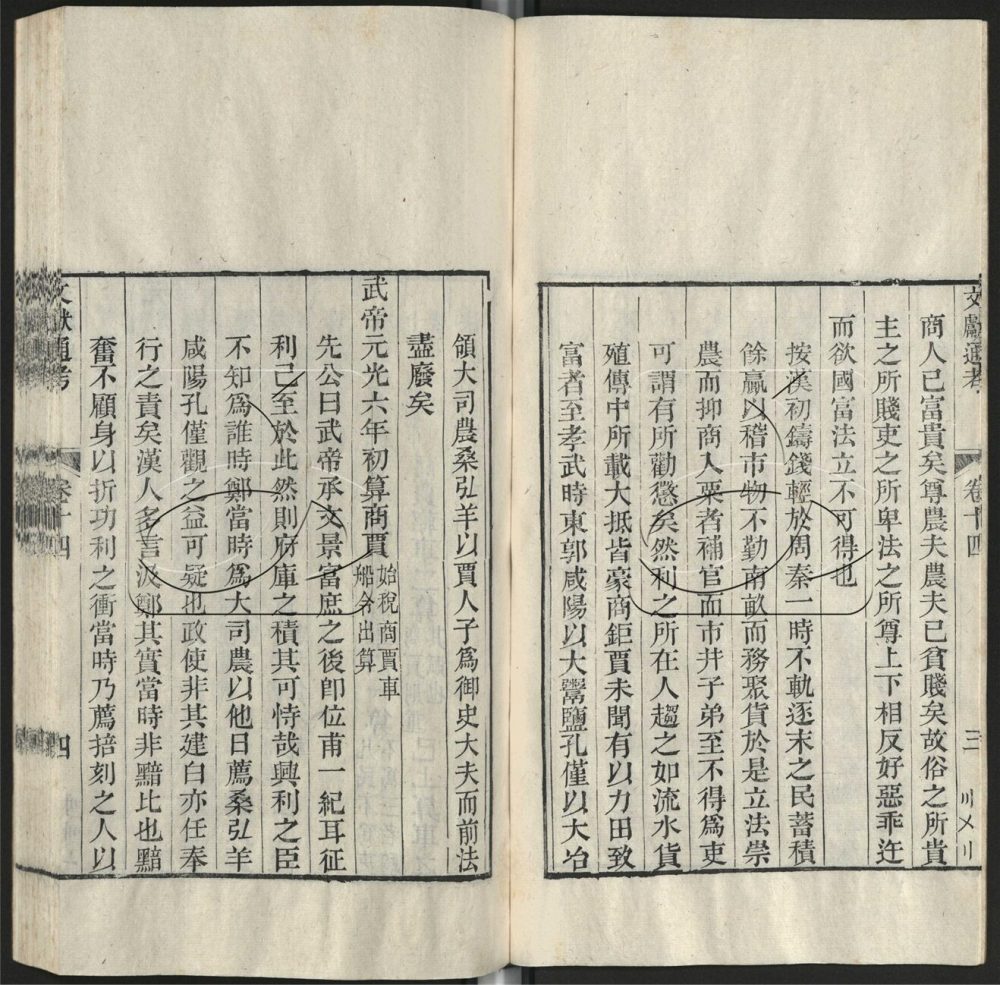 文獻通考 卷十四 三 〣〤〣
商人已富貴矣尊農夫農夫已貧賤矣故俗之所貴
主之所賤吏之所卑法之所尊上下相反好惡乖迕
而欲國富法立不可得也
按漢初鑄錢輕於周秦一時不軌逐末之民蓄積
餘贏以稽市物不勤南畝而務聚貨於是立法崇
農而抑商入粟者補官而市井子弟至不得爲吏
可謂有所勸懲矣然利之所在人趨之如流水貨
殖傳中所載大抵皆豪商鉅賈未聞有以力田致
富者至孝武時東郭咸陽以大鬻鹽孔僅以大冶
領大司農桑弘羊以賈人子爲御史大夫而前法
盡廢矣
武帝元光六年初算商賈始稅商賈車船令出算
先公曰武帝承文景富庶之後卽位甫一紀耳征
利已至於此然則府庫之積其可恃哉興利之臣
不知爲誰時鄭當時爲大司農以他日薦桑弘羊
咸陽孔僅觀之益可疑也政使非其建白亦任奉
行之責矣漢人多言汲鄭其實當時非黯比也黯
奮不顧身以折功利之衝當時乃薦掊刻之人以
文獻通考 卷十四 四